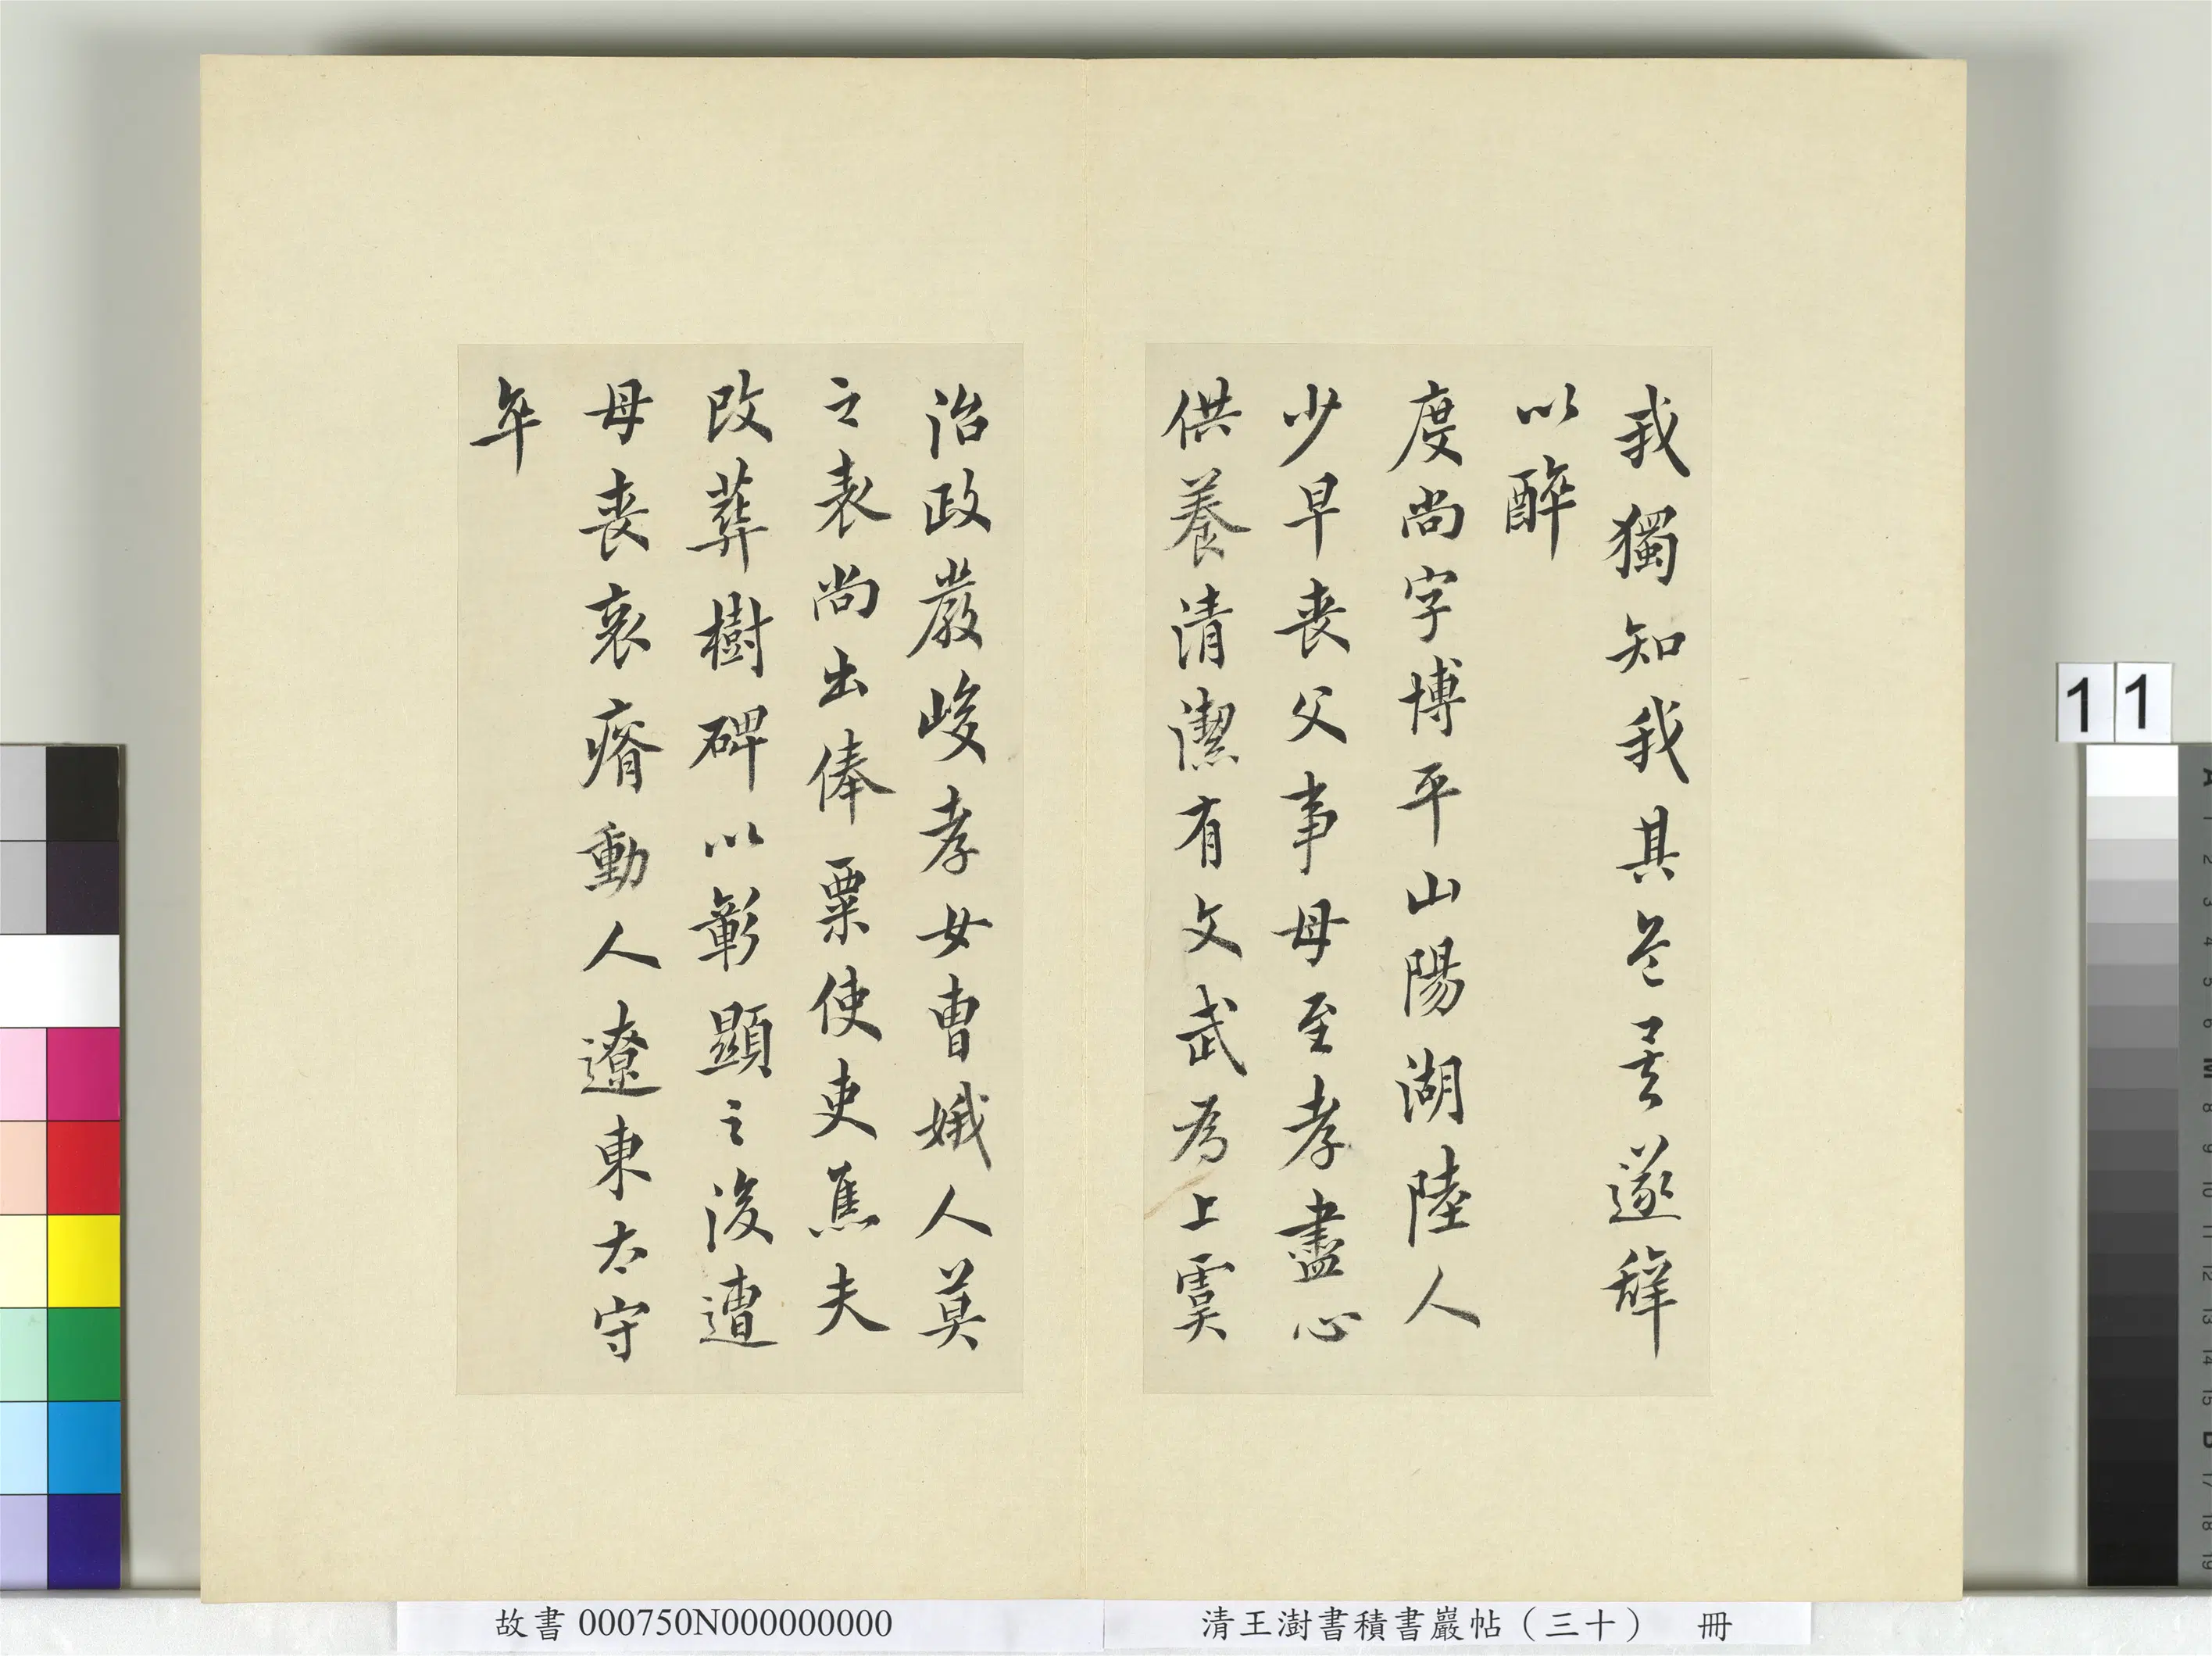 我獨知我其無異遂辭
以醉
度尚字博平山陽湖陸人
少早喪父事母至孝盡心
供養清潔有文武為上虞
治政嚴峻孝女曹娥人莫
之表尚出俸粟使吏焦夫
改葬樹碑以彰顯之後遭
母喪哀瘠動人遼東太守
年
11
故書 000750N000000000
清王澍書積書巖帖（三十） 冊